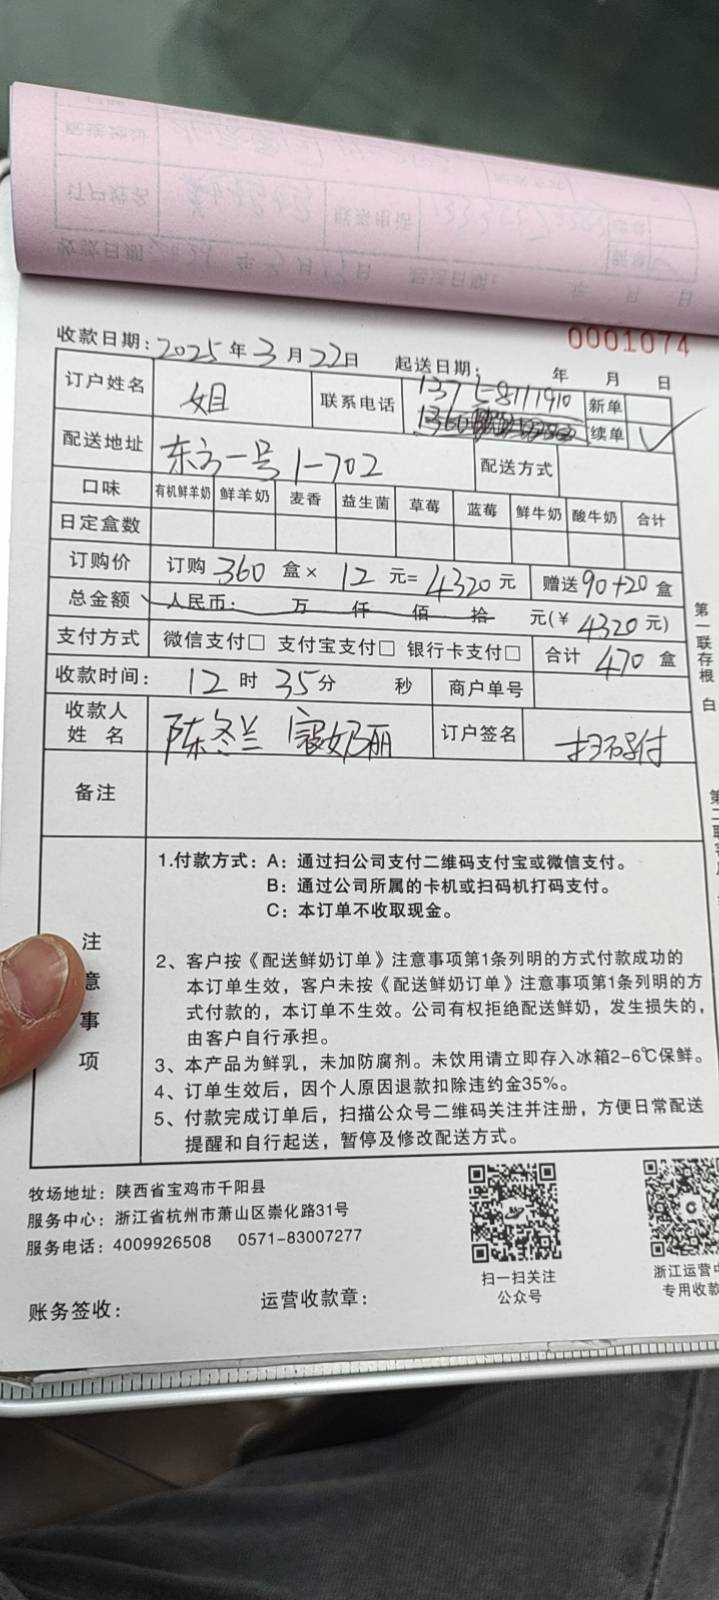 0001074
收款日期：2025年3月22日 起送日期： 年 月 日
订户姓名 姐 联系电话 新单
1360 续单 ✓
配送地址 东方一号1-702 配送方式
口味 有机鲜羊奶 鲜羊奶 麦香 益生菌 草莓 蓝莓 鲜牛奶 酸牛奶 合计
日定盒数
订购价 订购360盒×12元=4320元 赠送90+20盒
总金额 人民币： 万 仟 佰 拾 元(￥4320元)
支付方式 微信支付□ 支付宝支付□ 银行卡支付□ 合计470盒
收款时间： 12时35分 秒 商户单号
收款人姓名 陈冬兰 寇奶丽 订户签名 扫码付
备注
注意事项
1.付款方式：A：通过扫公司支付二维码支付宝或微信支付。
B：通过公司所属的卡机或扫码机打码支付。
C：本订单不收取现金。
2、客户按《配送鲜奶订单》注意事项第1条列明的方式付款成功的
本订单生效，客户未按《配送鲜奶订单》注意事项第1条列明的方
式付款的，本订单不生效。公司有权拒绝配送鲜奶，发生损失的，
由客户自行承担。
3、本产品为鲜乳，未加防腐剂。未饮用请立即存入冰箱2-6℃保鲜。
4、订单生效后，因个人原因退款扣除违约金35%。
5、付款完成订单后，扫描公众号二维码关注并注册，方便日常配送
提醒和自行起送，暂停及修改配送方式。
第一联存根 白
第二联
牧场地址：陕西省宝鸡市千阳县
服务中心：浙江省杭州市萧山区崇化路31号
服务电话：4009926508 0571-83007277
扫一扫关注
公众号
浙江运营中
专用收款
账务签收： 运营收款章：